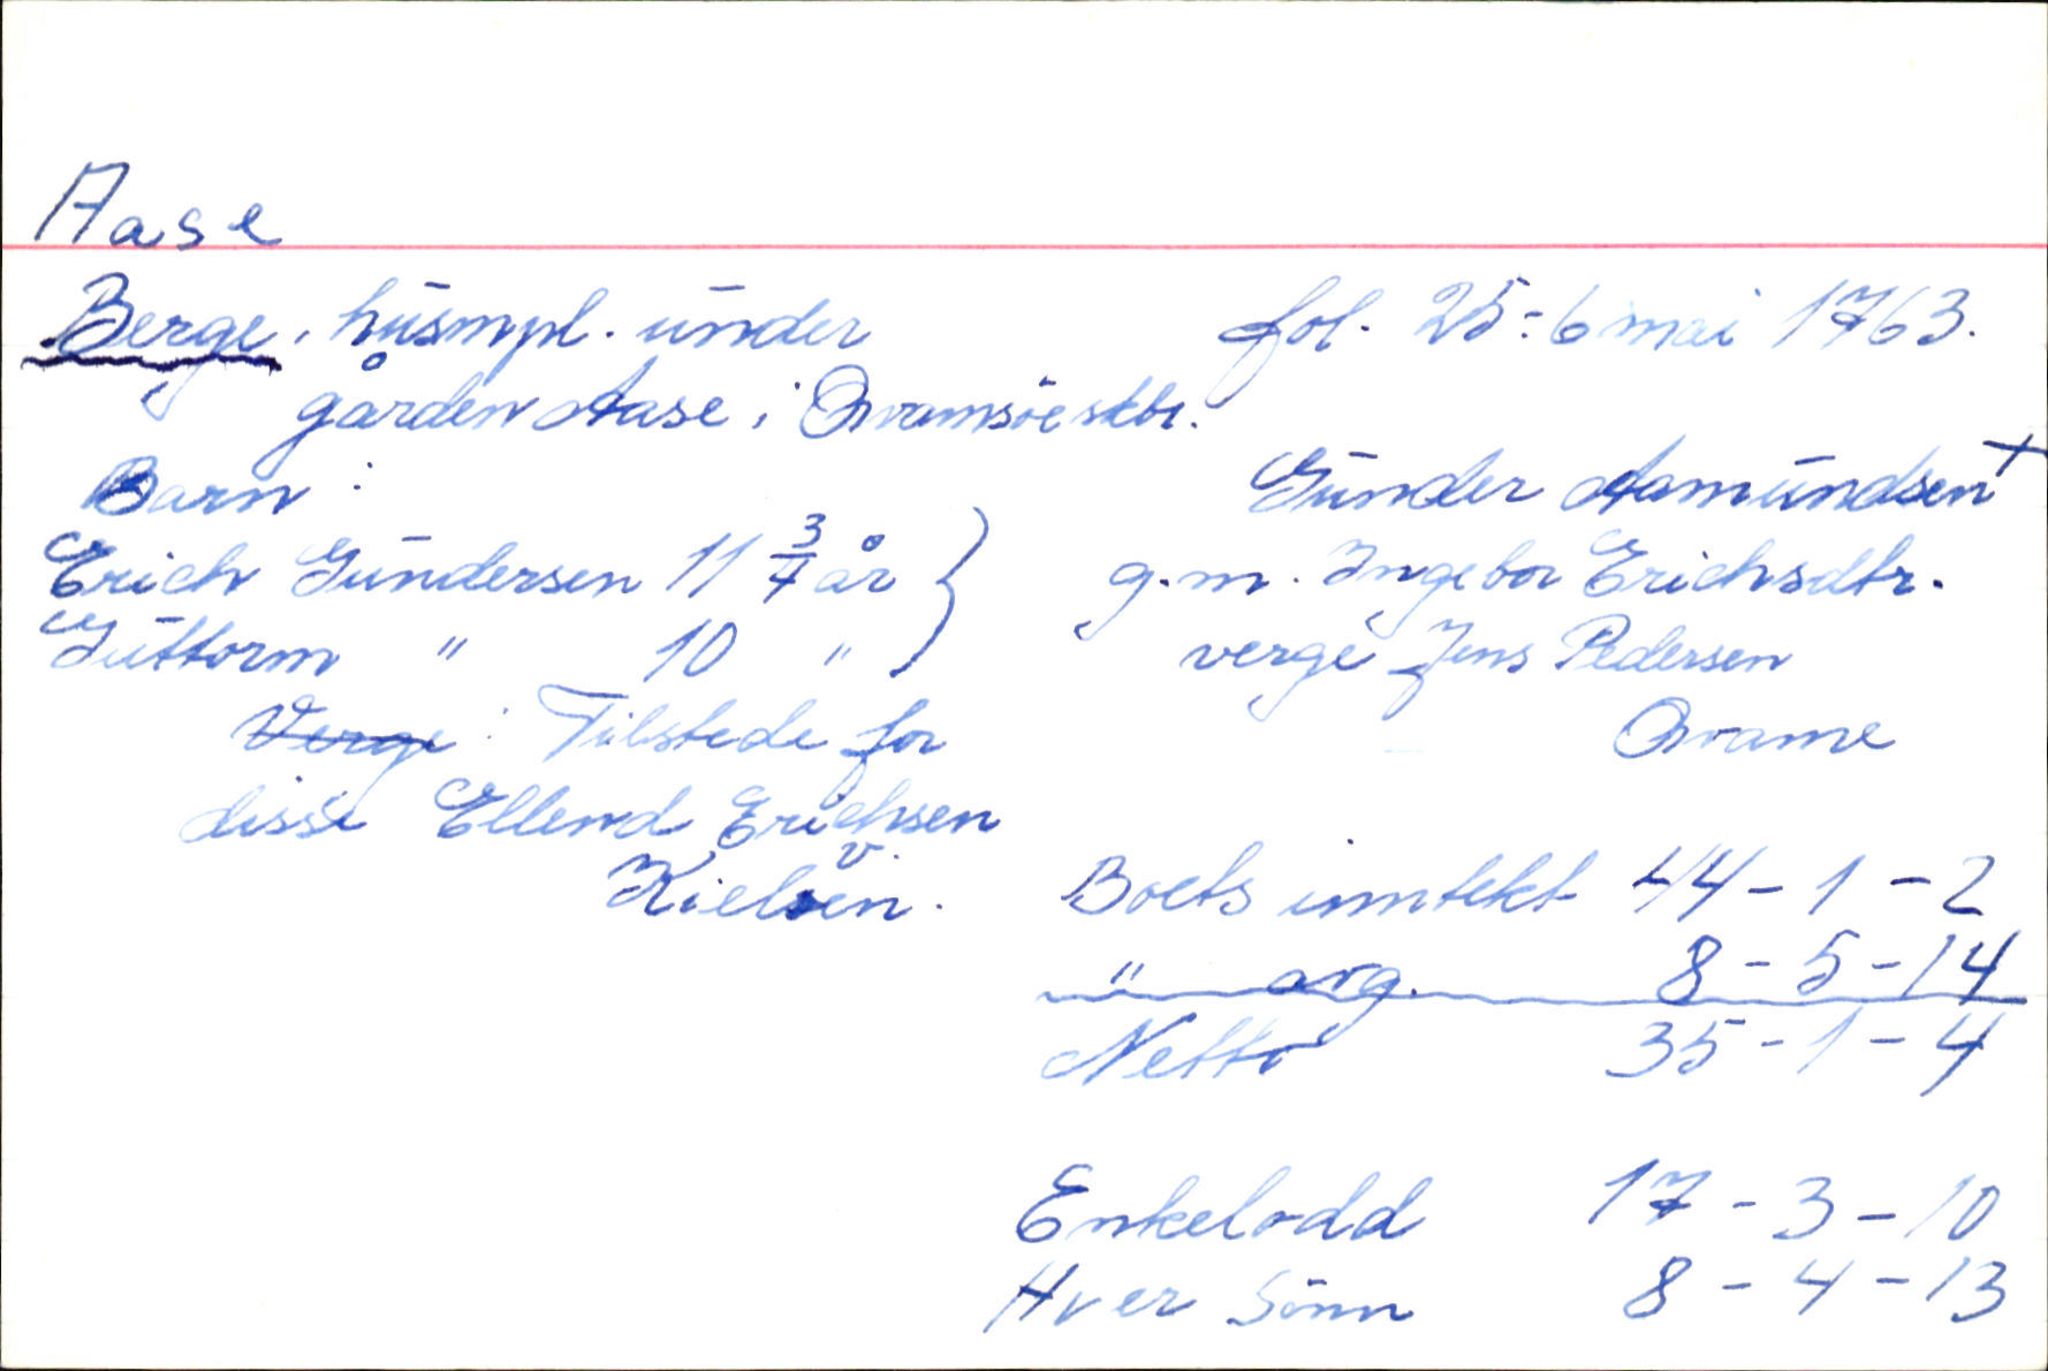 Aase
Berge, husmpl. under
gården Aase i Qvamsöe skbr.
fol. 25: 6 mai 1763.
Gunder Aamundsen +
g.m. Ingebor Erichsdtr.
verge Jens Pedersen
Qvame
Barn:
Erich Gundersen 11 3/4 år }
Guttorm " 10 "
Verge: Tilstede for
disse Ellend Erichsen
v.
Kielsen.
Boets inntekt 44-1-2
" avg. 8-5-14
Netto 35-1-4
Enkelodd 17-3-10
Hver Sönn 8-4-13